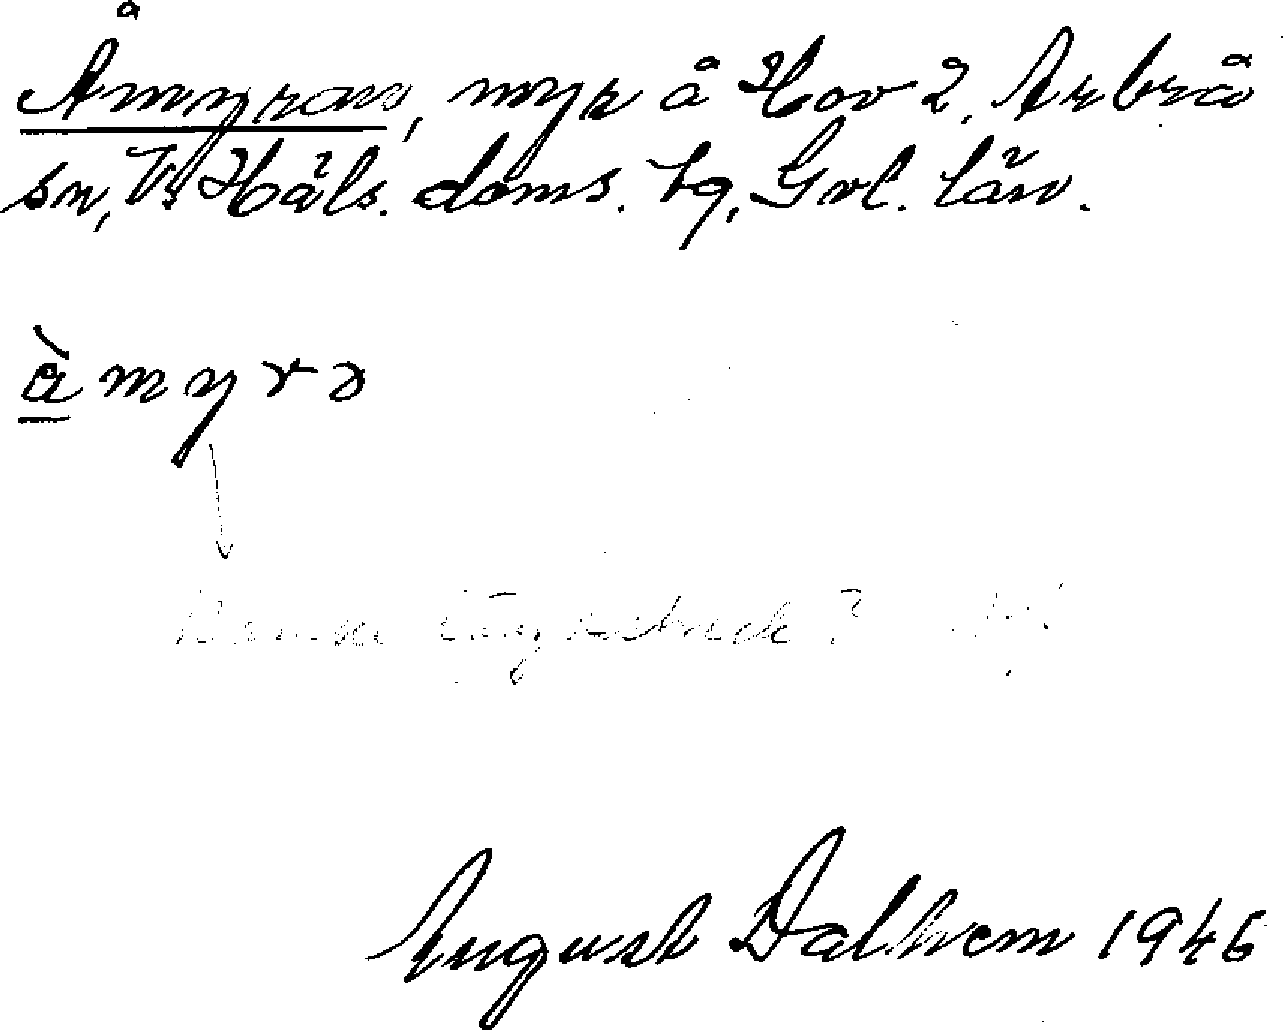 Åmyran, myr å Hov 2, Arbrå
sn, V. Häls. doms. tg, Gvl. län.
à̱ m y r ə
August Dalhem 1946